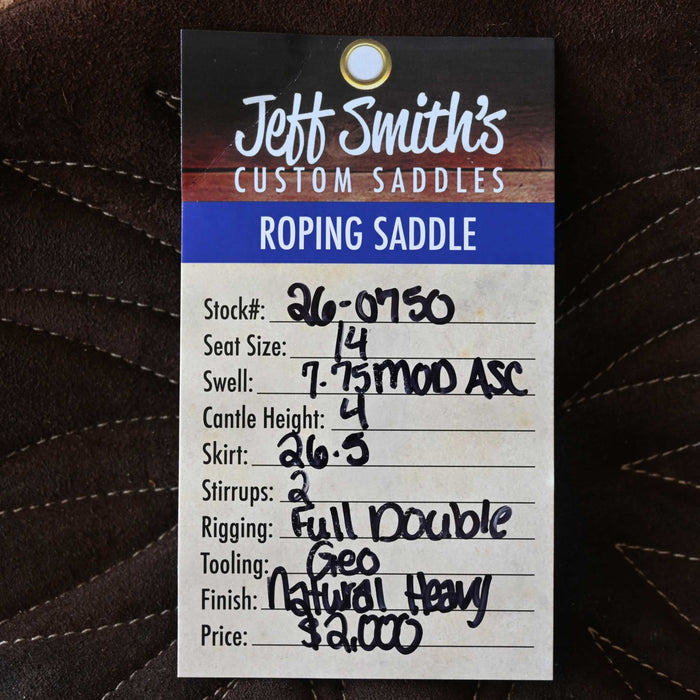 Jeff Smith's
CUSTOM SADDLES
ROPING SADDLE
Stock#: 26-0750
Seat Size: 14
Swell: 7.75 MOD ASC
Cantle Height: 4
Skirt: 26.5
Stirrups: 2
Rigging: Full Double
Tooling: Geo
Finish: Natural Heavy
Price: $2,000